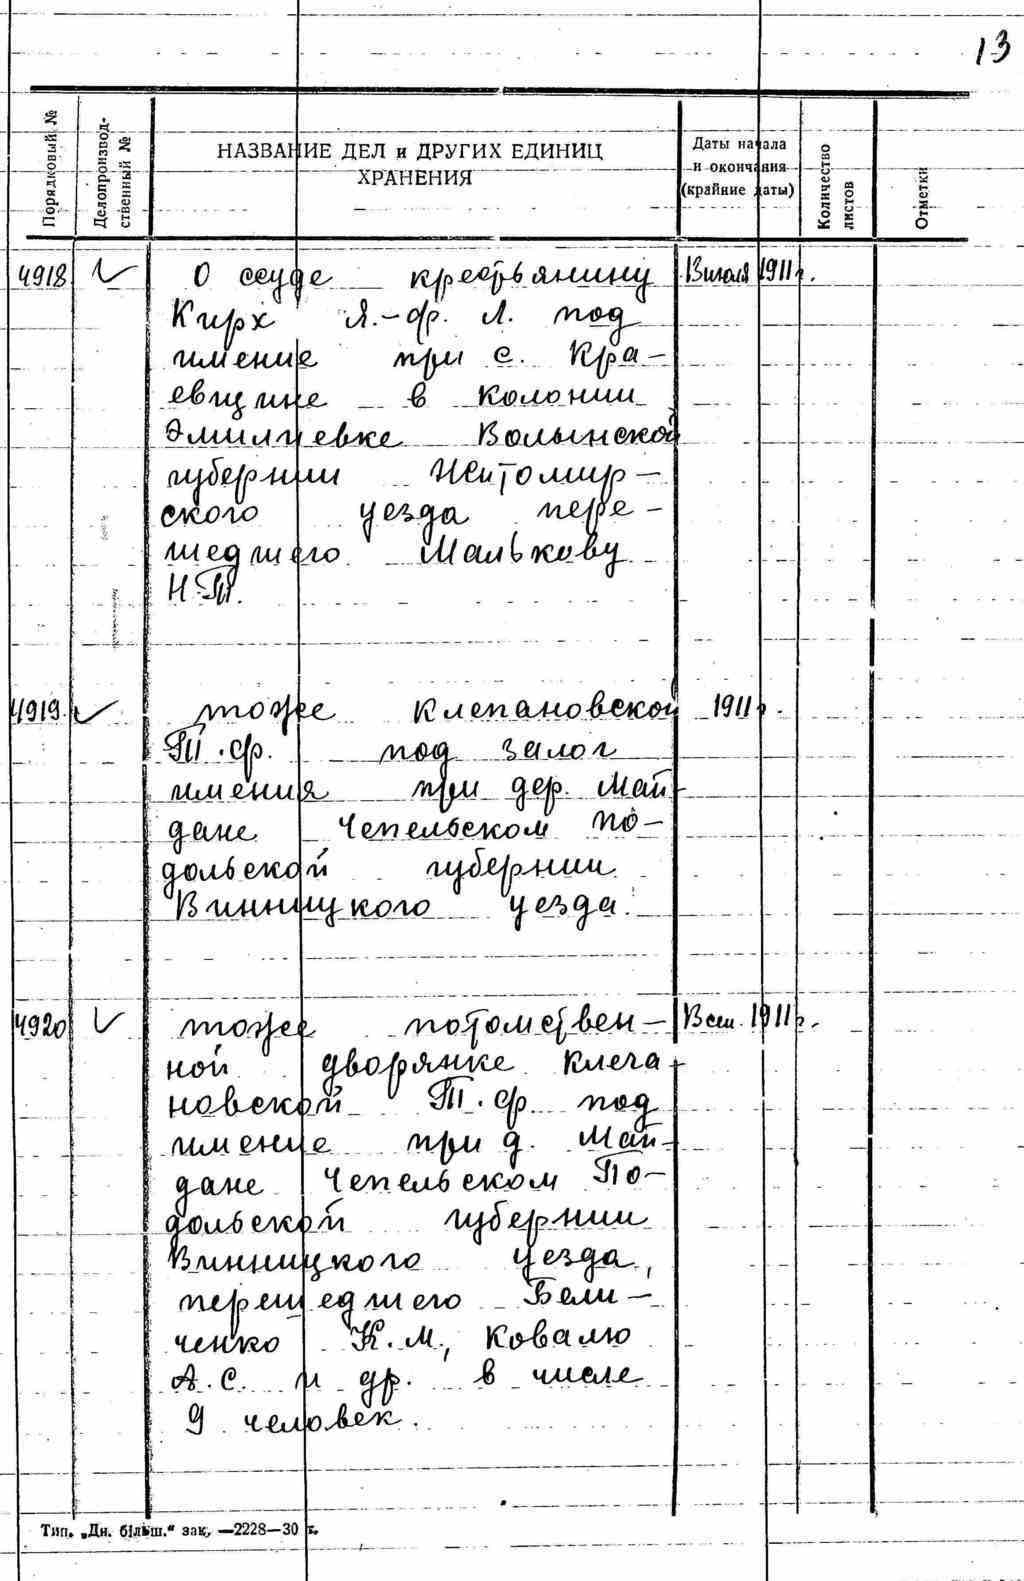 13
Порядковый №
Делопроизвод-
ственный №
НАЗВАНИЕ ДЕЛ и ДРУГИХ ЕДИНИЦ
ХРАНЕНИЯ
Даты начала
и окончания
(крайние даты)
Количество
листов
Отметки
4918 О ссуде крестьянину 13 июля 1911 г.
Кирх Я.-Ф. Л. под
имение при с. Кра-
евщине в колонии
Эмильевке Волынской
губернии Житомир-
ского уезда пере-
шедшего Малькову
Н.Т.
4919 тоже Клепановской 1911 г.
Т.Ф. под залог
имения при дер. Май
дане Чепельском По-
дольской губернии
Винницкого уезда.
4920 тоже потомствен- 1911 г.
ной дворянке Клеча
новской Т.Ф. под
имение при д. Май-
дане Чепельском По-
дольской губернии
Винницкого уезда,
перешедшего Бели-
ченко К.М., Ковалю
А.С. и др. в числе
9 человек.
Тип. „Дн. більш." зак. —2228—30 г.